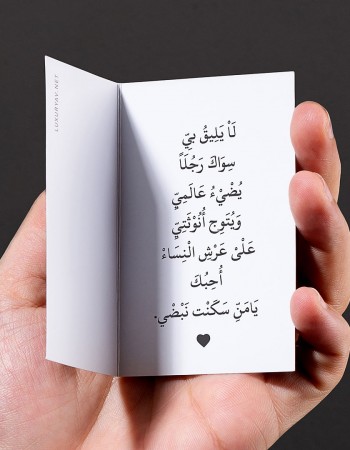 لَاْ يَلِيقُ بِيّ
سِوَاكَ رَجُلَاً
يُضْيْءُ عَالَمِيّ
وَيُتَوِج أُنُوْثَتِيّ
عَلَىْ عَرْشِ الْنِسَاءْ
أُحِبُكَ
يَامَنِّ سَكَنْت نَبْضْي.